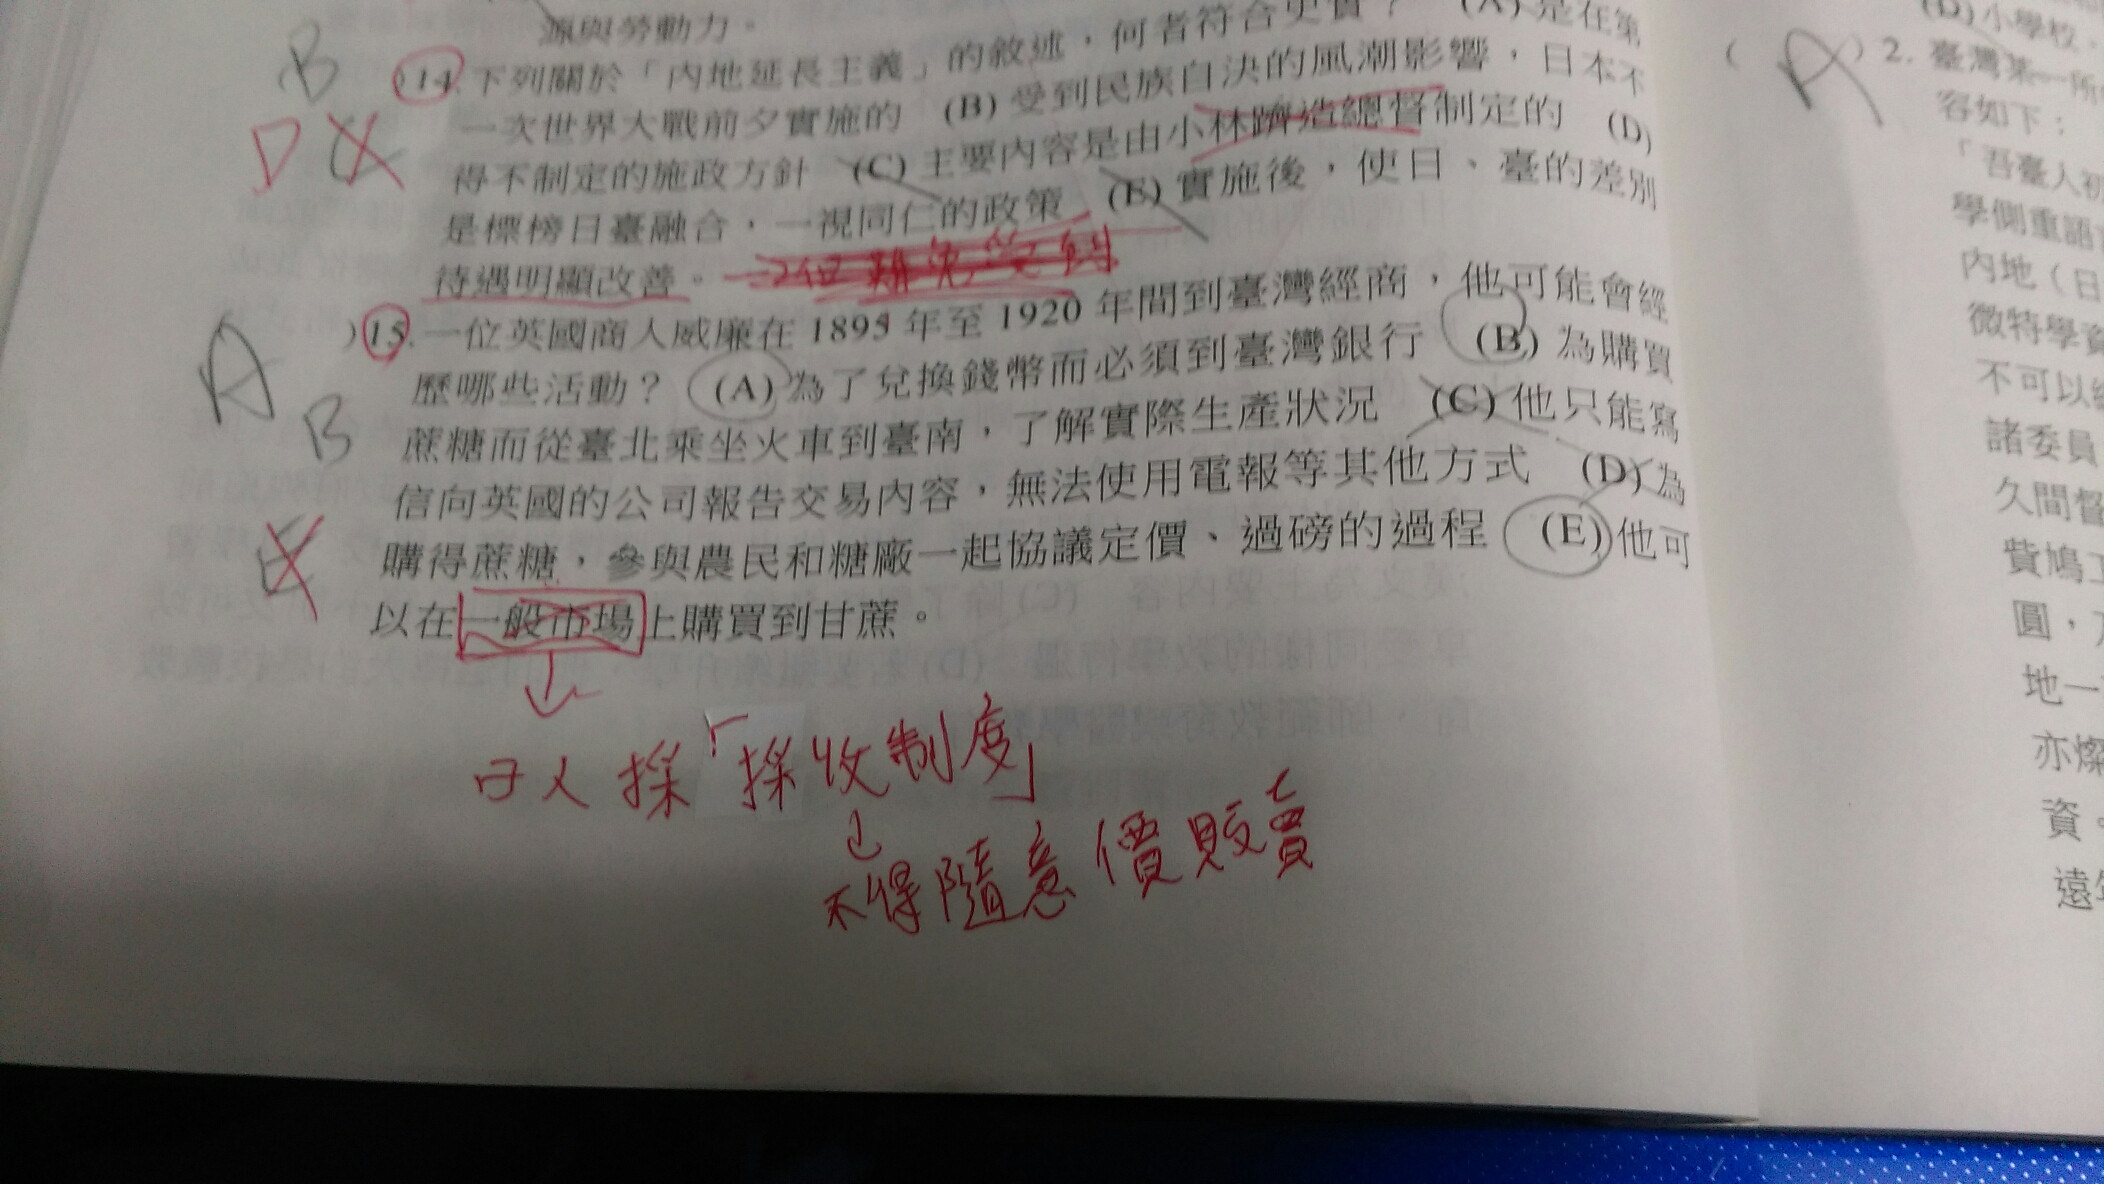 源與勞動力。
B )14.下列關於「內地延長主義」的敘述，何者符合史實？ (A)是在第
D 一次世界大戰前夕實施的 (B)受到民族自決的風潮影響，日本不
得不制定的施政方針 (C)主要內容是由小林躋造總督制定的 (D)
是標榜日臺融合，一視同仁的政策 (E)實施後，使日、臺的差別
待遇明顯改善。
A )15.一位英國商人威廉在1895年至1920年間到臺灣經商，他可能會經
歷哪些活動？ (A)為了兌換錢幣而必須到臺灣銀行 (B)為購買
B 蔗糖而從臺北乘坐火車到臺南，了解實際生產狀況 (C)他只能寫
信向英國的公司報告交易內容，無法使用電報等其他方式 (D)為
E 購得蔗糖，參與農民和糖廠一起協議定價、過磅的過程 (E)他可
以在一般市場上購買到甘蔗。
日人採「採收制度」
不得隨意價販賣
(D)小學校
( A )2.臺灣某一所
容如下：
「吾臺人初
學側重語
內地（日
微特學資
不可以
諸委員
久間督
費鳩工
圓，
地一
亦燦
資。
遠